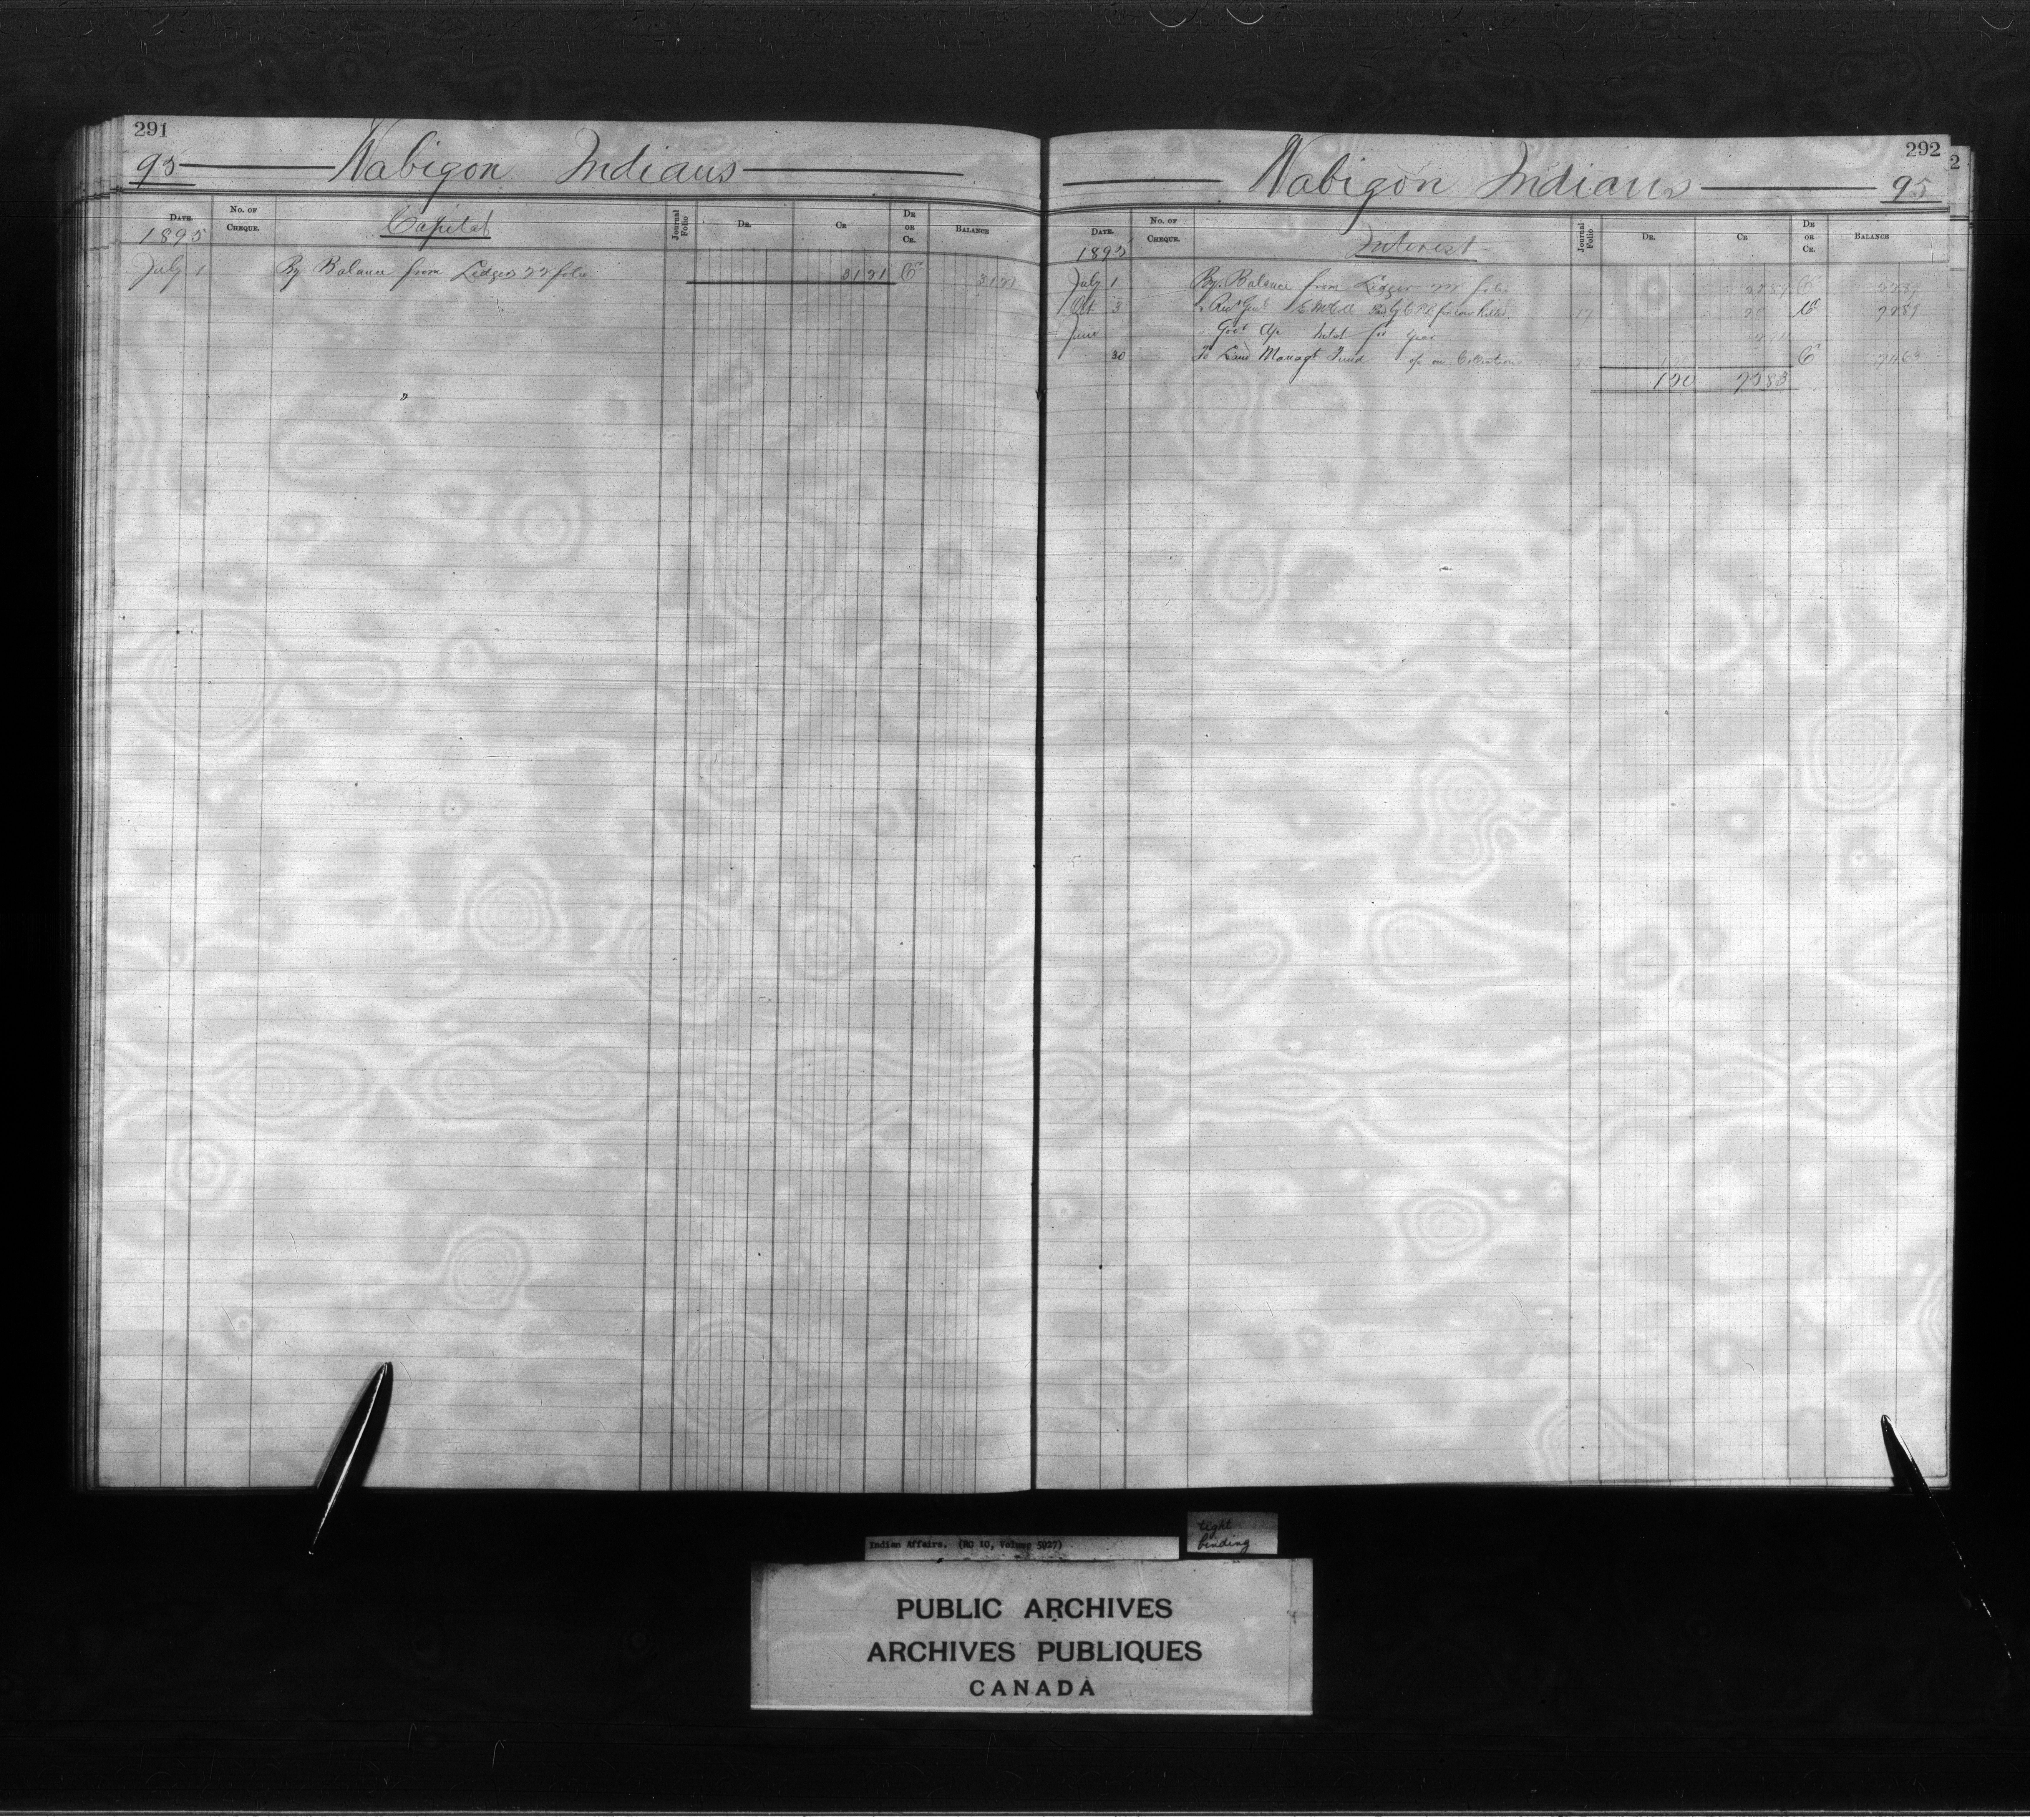 291
95 Wabigon Indians
DATE. No. OF CHEQUE. Capital Journal Folio DR. CR DR OR CR. BALANCE
1895
July 1 By Balance from Ledger folio 3121 Cr 3121
292
Wabigon Indians 95
DATE. No. OF CHEQUE. Interest Journal Folio DR. CR DR OR CR. BALANCE
1895
July 1 By Balance from Ledger folio Cr
Oct 3 E. McColl for cow killed 17 Cr
June Govt for year
30 To Land Managt Fund on Collections Cr
120 7583
Indian Affairs. (RG 10, Volume 5927)
tight
binding
PUBLIC ARCHIVES
ARCHIVES PUBLIQUES
CANADA